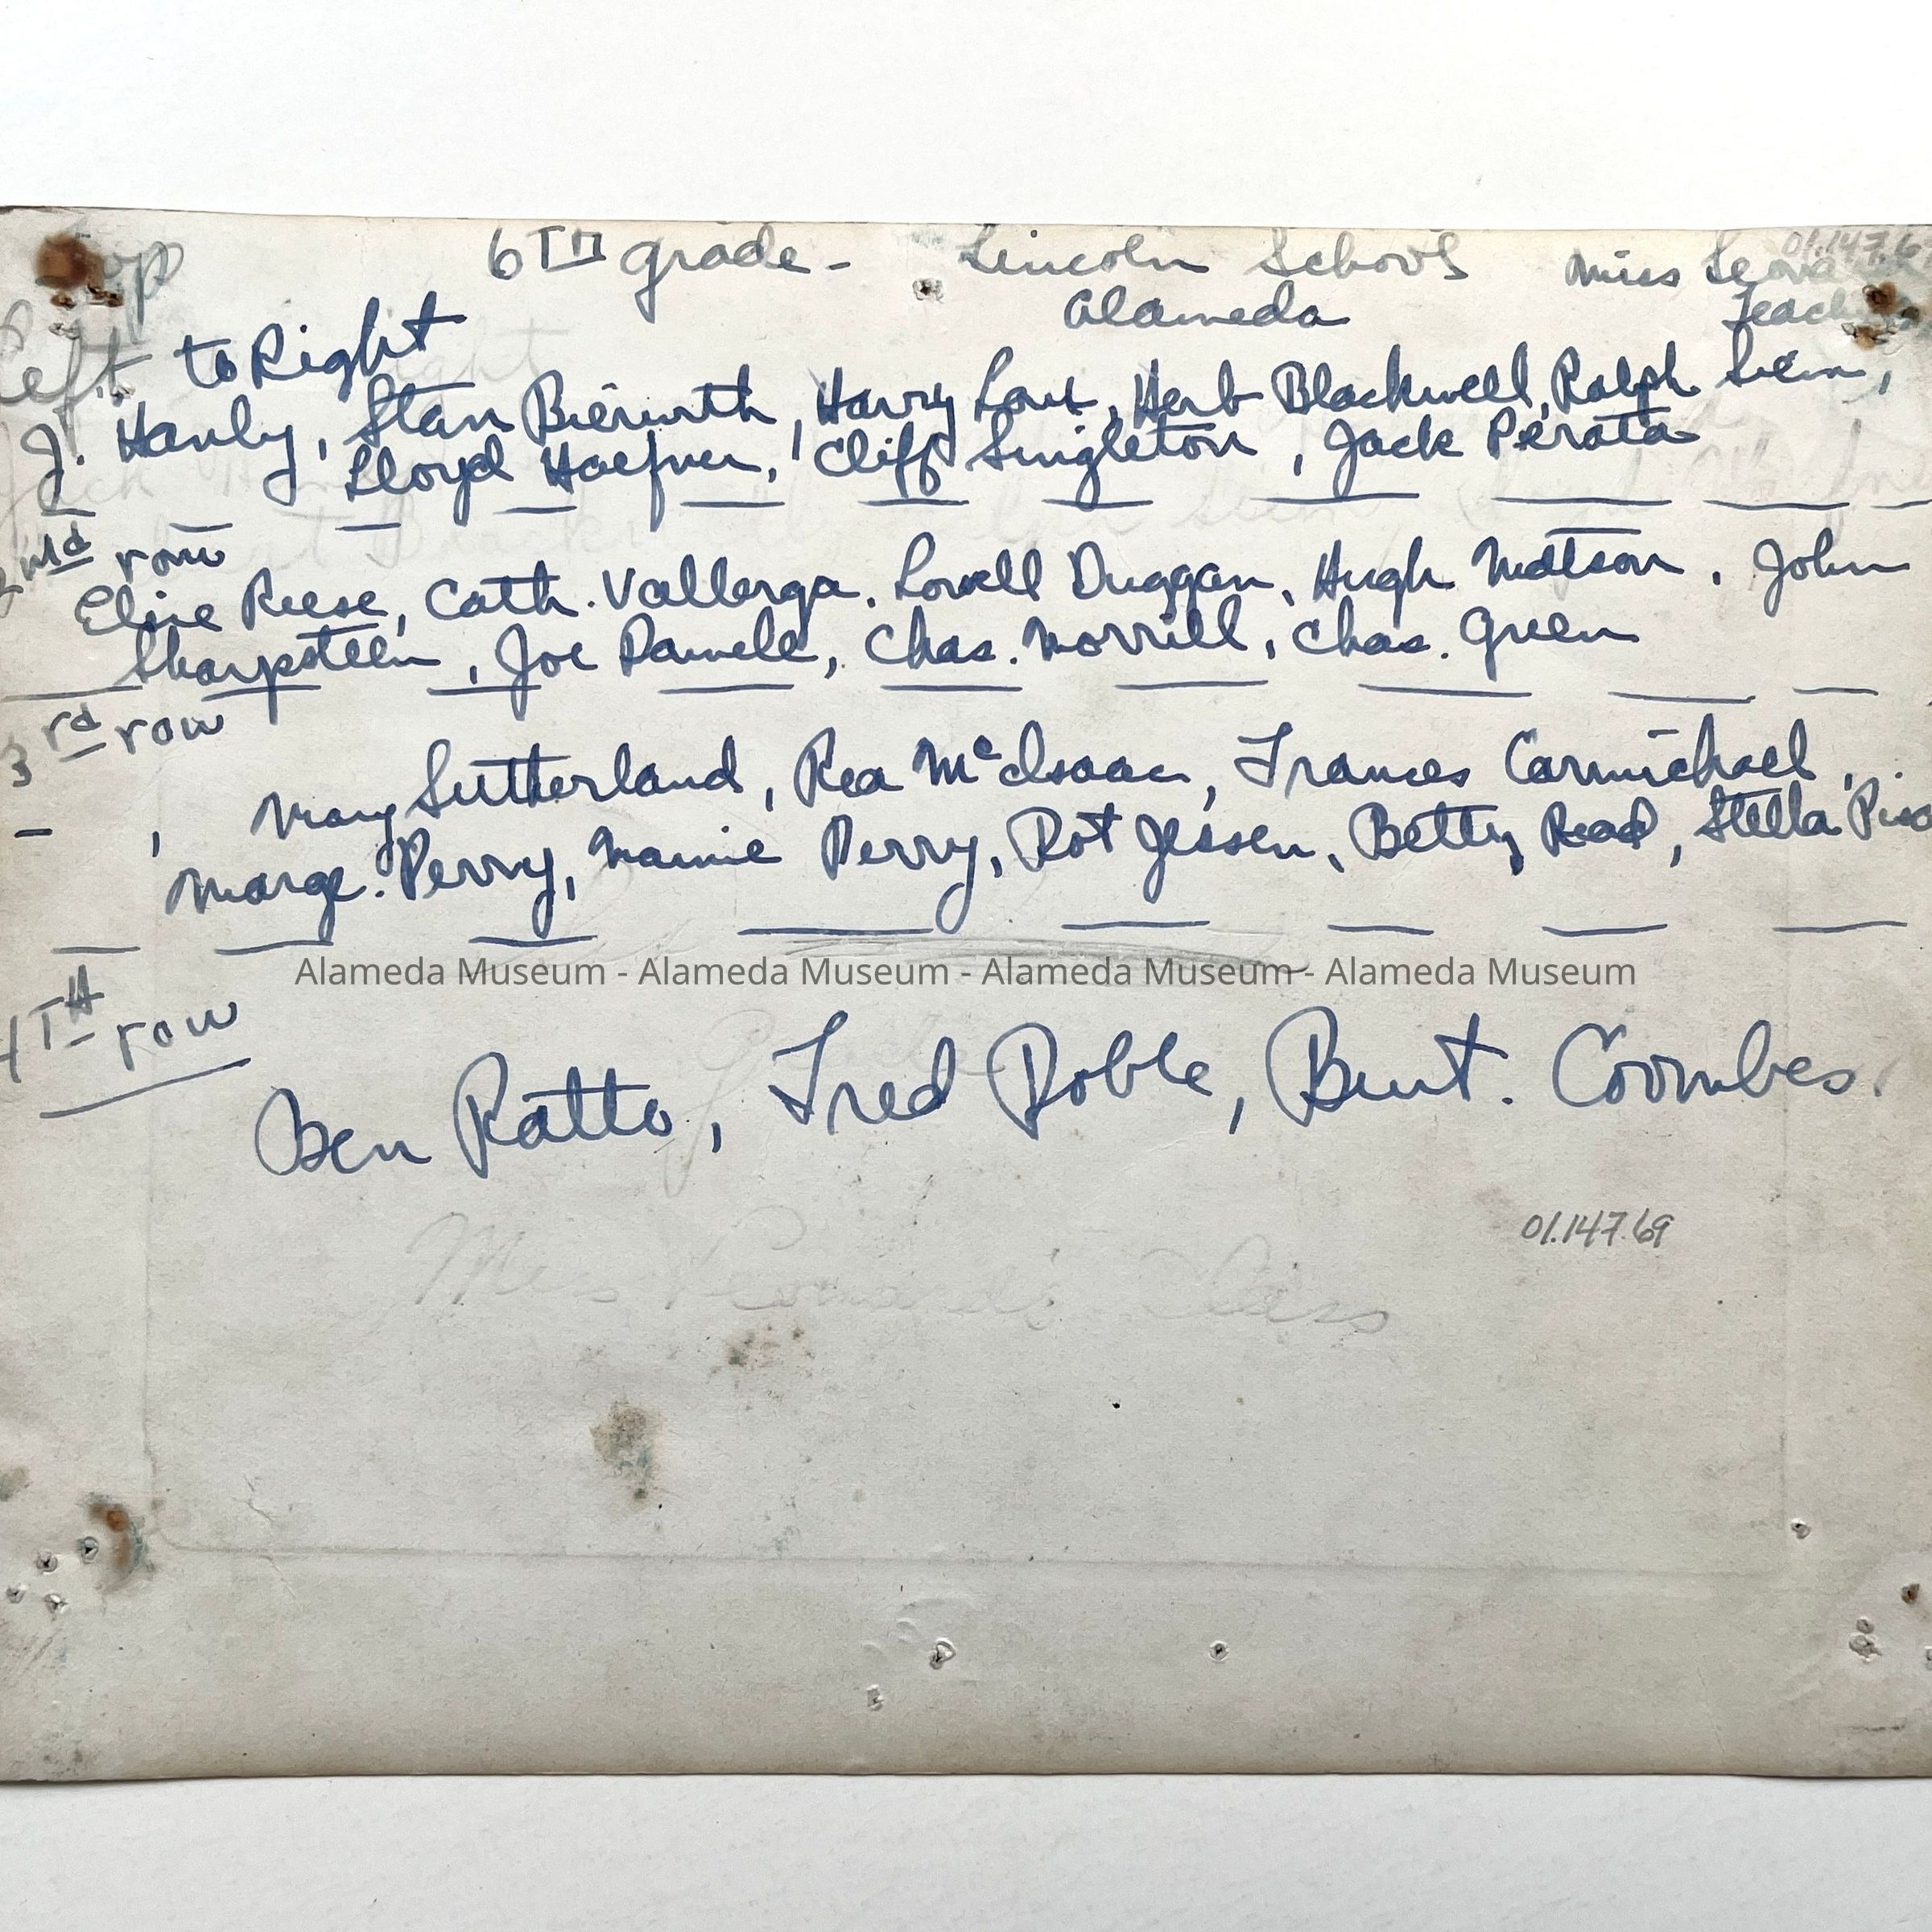 Top 6TH grade - Lincoln School Miss 01.147.6
Alameda Teacher
Left to Right
J. Hanly, Stan Bierwith, Harry Low, Herb Blackwell, Ralph Siem,
Lloyd Haefner, Cliff Singleton, Jack Perata
2nd row
Elsie Reese, Cath. Vallerga, Lowell Duggan, Hugh Matson, John
Sharpsteen, Joe Damele, Chas. Morrill, Chas. Green
3rd row
Mary Sutherland, Rea McIsaac, Frances Carmichael,
Marge. Perry, Mamie Perry, Dot Jessen, Betty Read, Stella
Alameda Museum - Alameda Museum - Alameda Museum - Alameda Museum
4TH row
Ben Ratto, Fred Doble, Burt. Coombes.
01.147.69
Miss Leonard's Class